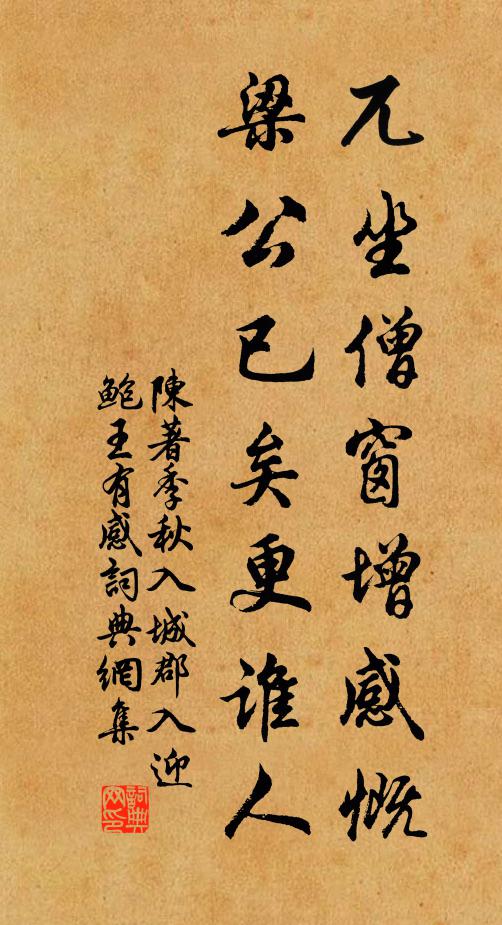 兀坐僧窗增感慨
梁公已矣更誰人
陳著季秋入城郡入迎
鮑王有感詞典網集
詞典
网印